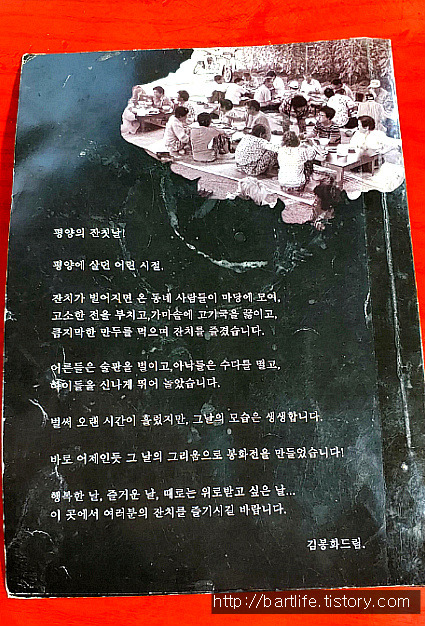 평양의 잔칫날!
평양에 살던 어린 시절.
잔치가 벌어지면 온 동네 사람들이 마당에 모여,
고소한 전을 부치고,가마솥에 고기국을 끓이고,
큼지막한 만두를 먹으며 잔치를 즐겼습니다.
어른들은 술판을 벌이고,아낙들은 수다를 떨고,
아이들을 신나게 뛰어 놀았습니다.
벌써 오랜 시간이 흘렀지만, 그날의 모습은 생생합니다.
바로 어제인듯 그 날의 그리움으로 봉화전을 만들었습니다!
행복한 날, 즐거운 날, 때로는 위로받고 싶은 날...
이 곳에서 여러분의 잔치를 즐기시길 바랍니다.
김봉화드림.
http://bartlife.tistory.com